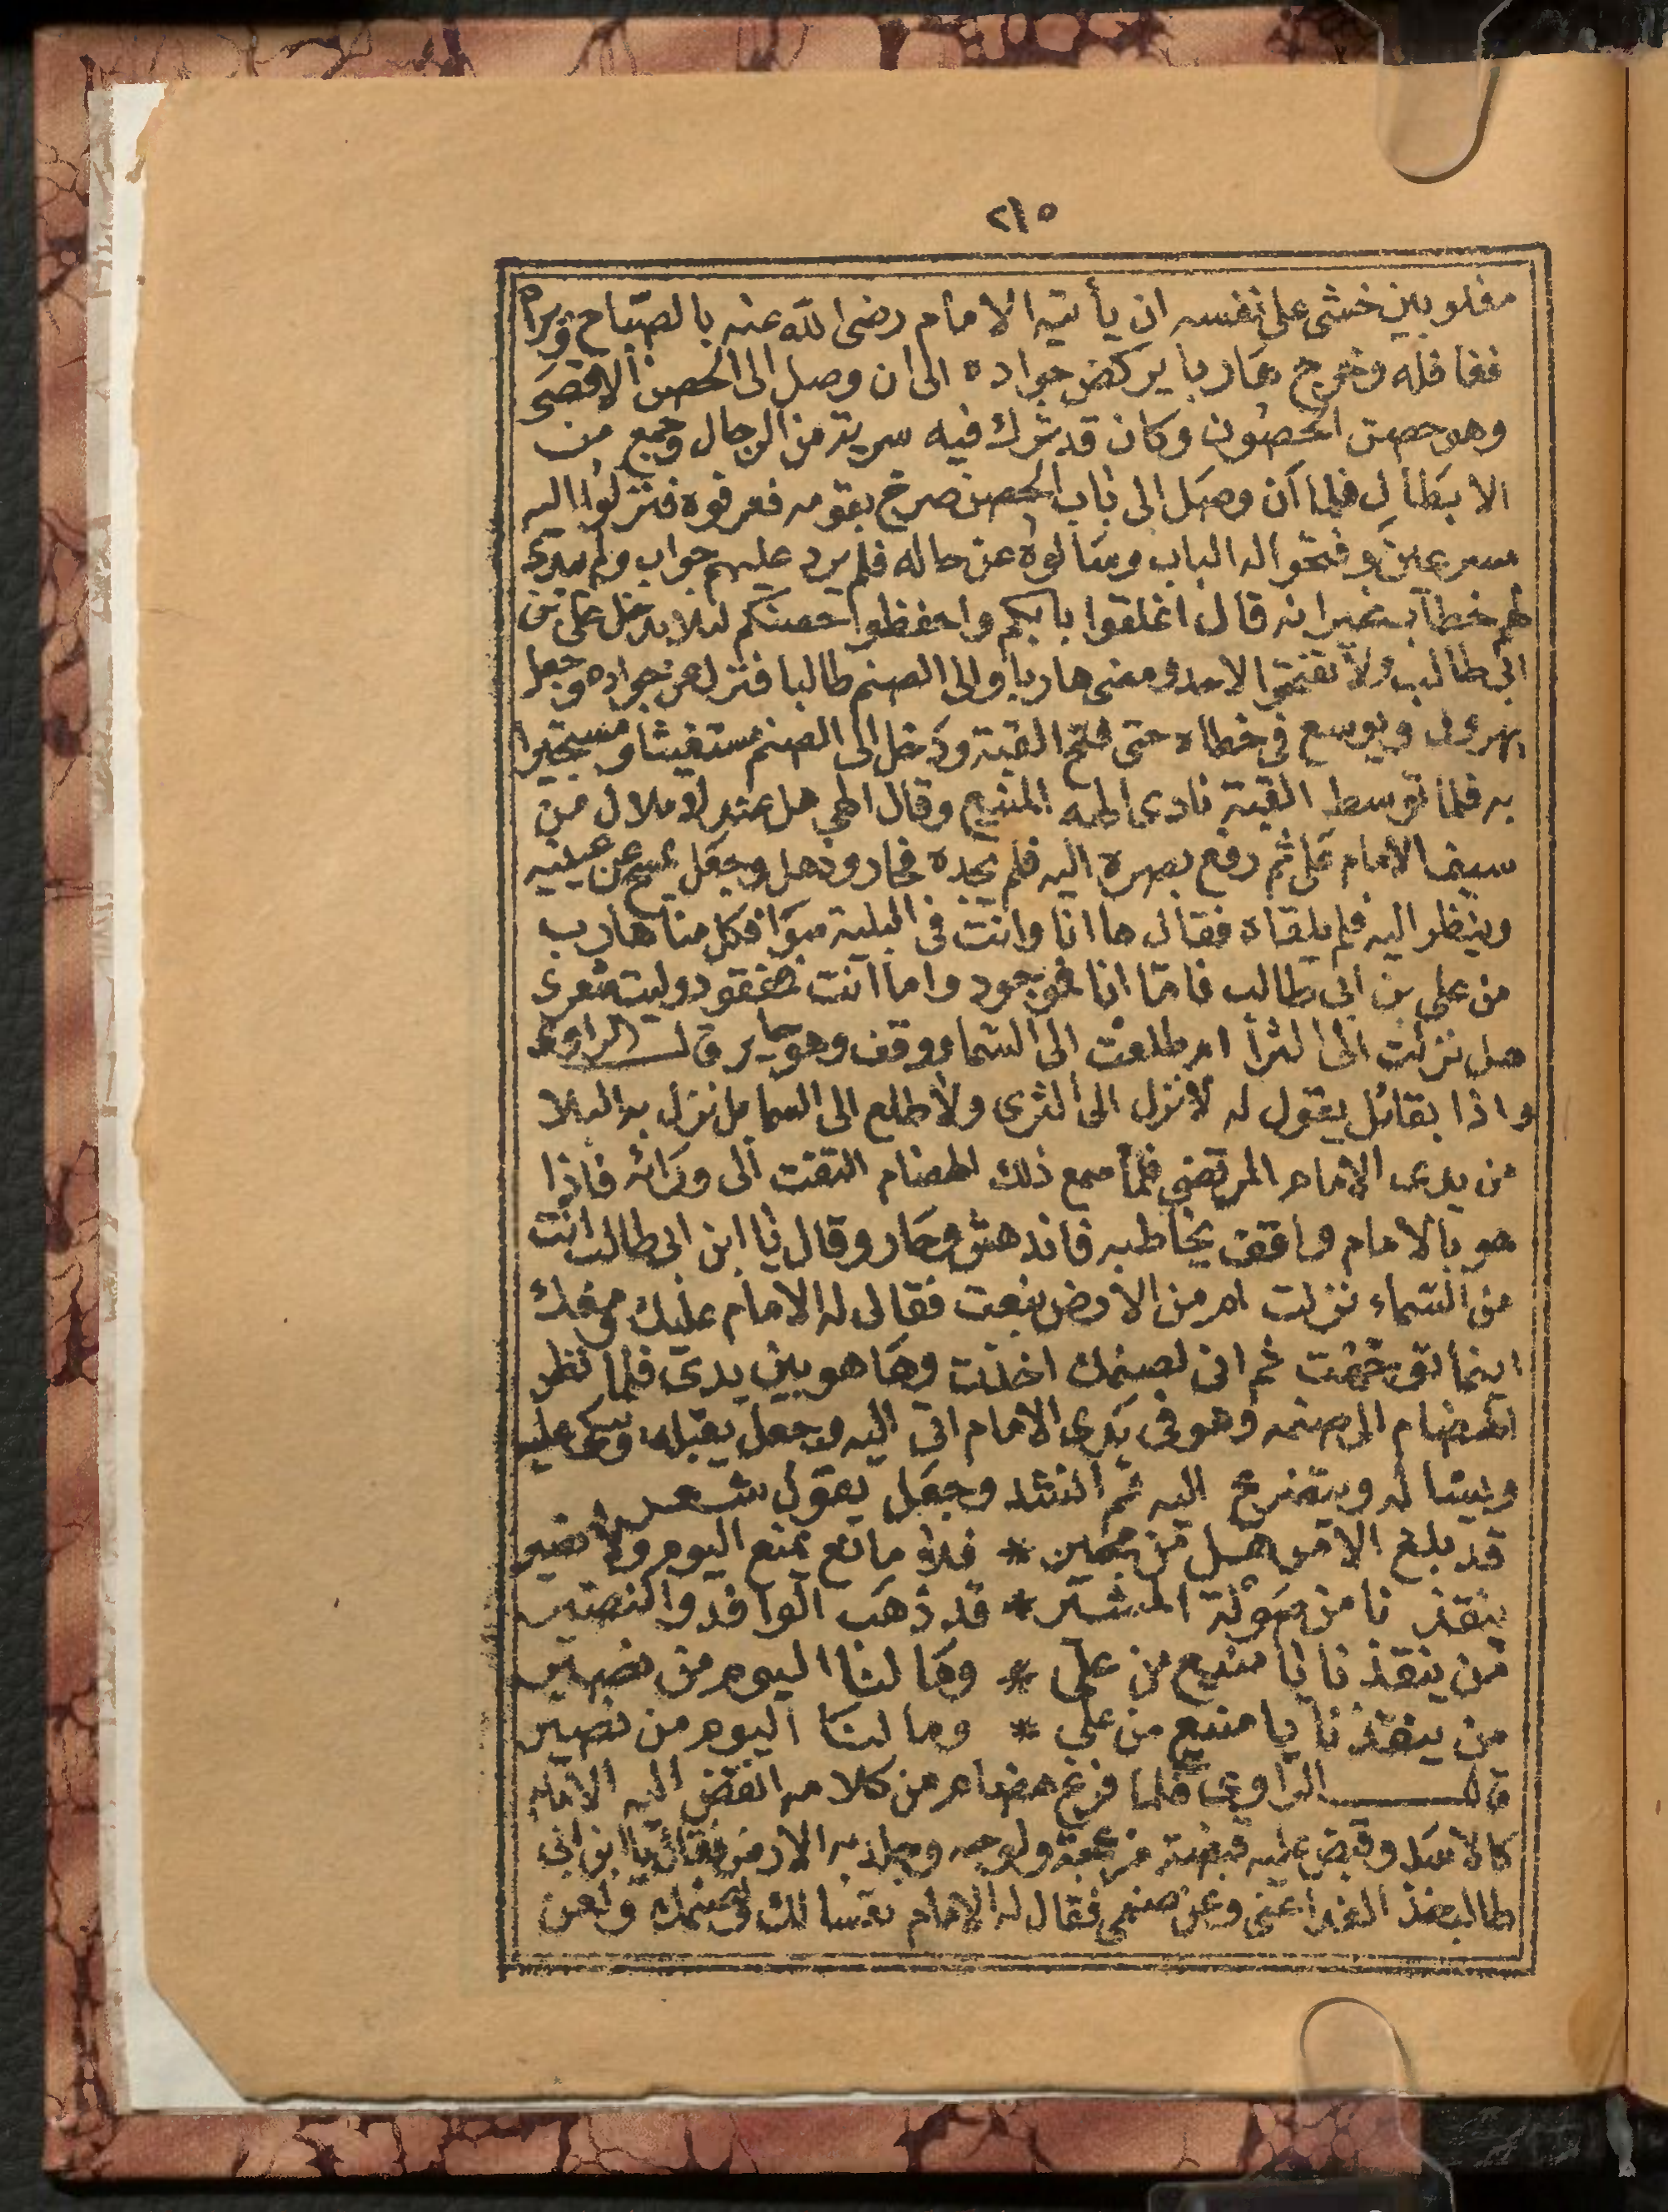 ٢١٥
مغلوبين خشى على نفسه ان يأتيه الامام رضى الله عنه بالصباح ويراه
فغافله وخرج هاربا يركض جواده الى ان وصل الى الحصن الاقصى
وهو حصن الحصون وكان قد ترك فيه سرية من الرجال وجمع من
الابطال فلما ان وصل الى باب الحصن صرخ بقومه فعرفوه فنزلوا اليه
مسرعين وفتحوا له الباب وسألوه عن حاله فلم يرد عليهم جواب ولم يبدى
لهم خطاب غير انه قال اغلقوا بابكم واحفظوا حصنكم لئلا يدخل على بن
ابى طالب ولا تفتحوا لاحد ومضى هاربا والى الصنم طالبا فنزل عن جواده وجعل
يهرول ويوسع فى خطاه حتى فتح القبة ودخل الى الصنم مستغيثا ومستجيرا
به فلما توسط القبة نادى الهه المنيع وقال الهى هل عندك ملال من
سيف الامام على ثم رفع بصره اليه فلم يجده فحار وذهل وجعل يمسح عن عينيه
وينظر اليه فلم يلقاه فقال ها انا وانت فى البلية سوا فكل منا هارب
من على بن ابى طالب فاما انا فموجود واما انت فمفقود وليت شعرى
هل نزلت الى الثرا ام طلعت الى السما ووقف وهو حاير قال الراوى
واذا بقائل يقول له لا نزل الى الثرى ولا طلع الى السما بل نزل به البلا
من يدى الامام المرتضى فلما سمع ذلك الهضام التفت الى ورائه فاذا
هو بالامام واقف يخاطبه فاندهش وحار وقال يا ابن ابى طالب انت
من السماء نزلت ام من الارض نبعت فقال له الامام عليك معك
اينما توجهت ثم انى لصنمك اخذت وها هو بين يدى فلما نظر
الهضام الى صنمه وهو فى يدى الامام اتى اليه وجعل يقبله ويبكى عليه
ويسأله ويتضرع اليه ثم انشد وجعل يقول شعر
قد بلغ الامر هل من مجير * فلا مانع يمنع اليوم ولا نصير
ينقذنا من صولة المشير * قد ذهب الوافد والنصير
من ينقذنا يا منيع من على * وما لنا اليوم من نصير
من ينقذنا يا منيع من على * وما لنا اليوم من نصير
قال الراوى فلما فرغ هضام من كلامه انقض اليه الامام
كالاسد وقبض عليه قبضة ولوحه وجلد به الارض فقال يا ابن ابى
طالب خذ الفدا عنى وعن صنمى فقال له الامام تعسا لك ولصنمك ولعن